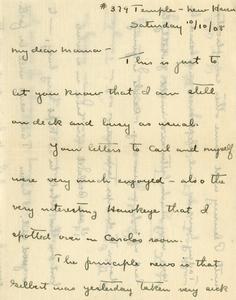 # 379 Temple - New Haven
Saturday 10/10/08
My dear Mama -
This is just to
let you know that I am still
on deck and busy as usual.
Your letters to Carl and myself
were very much enjoyed - also the
very interesting Hawkeye that I
spotted over in Carl's room.
The principle news is that
Gilbert was yesterday taken very sick